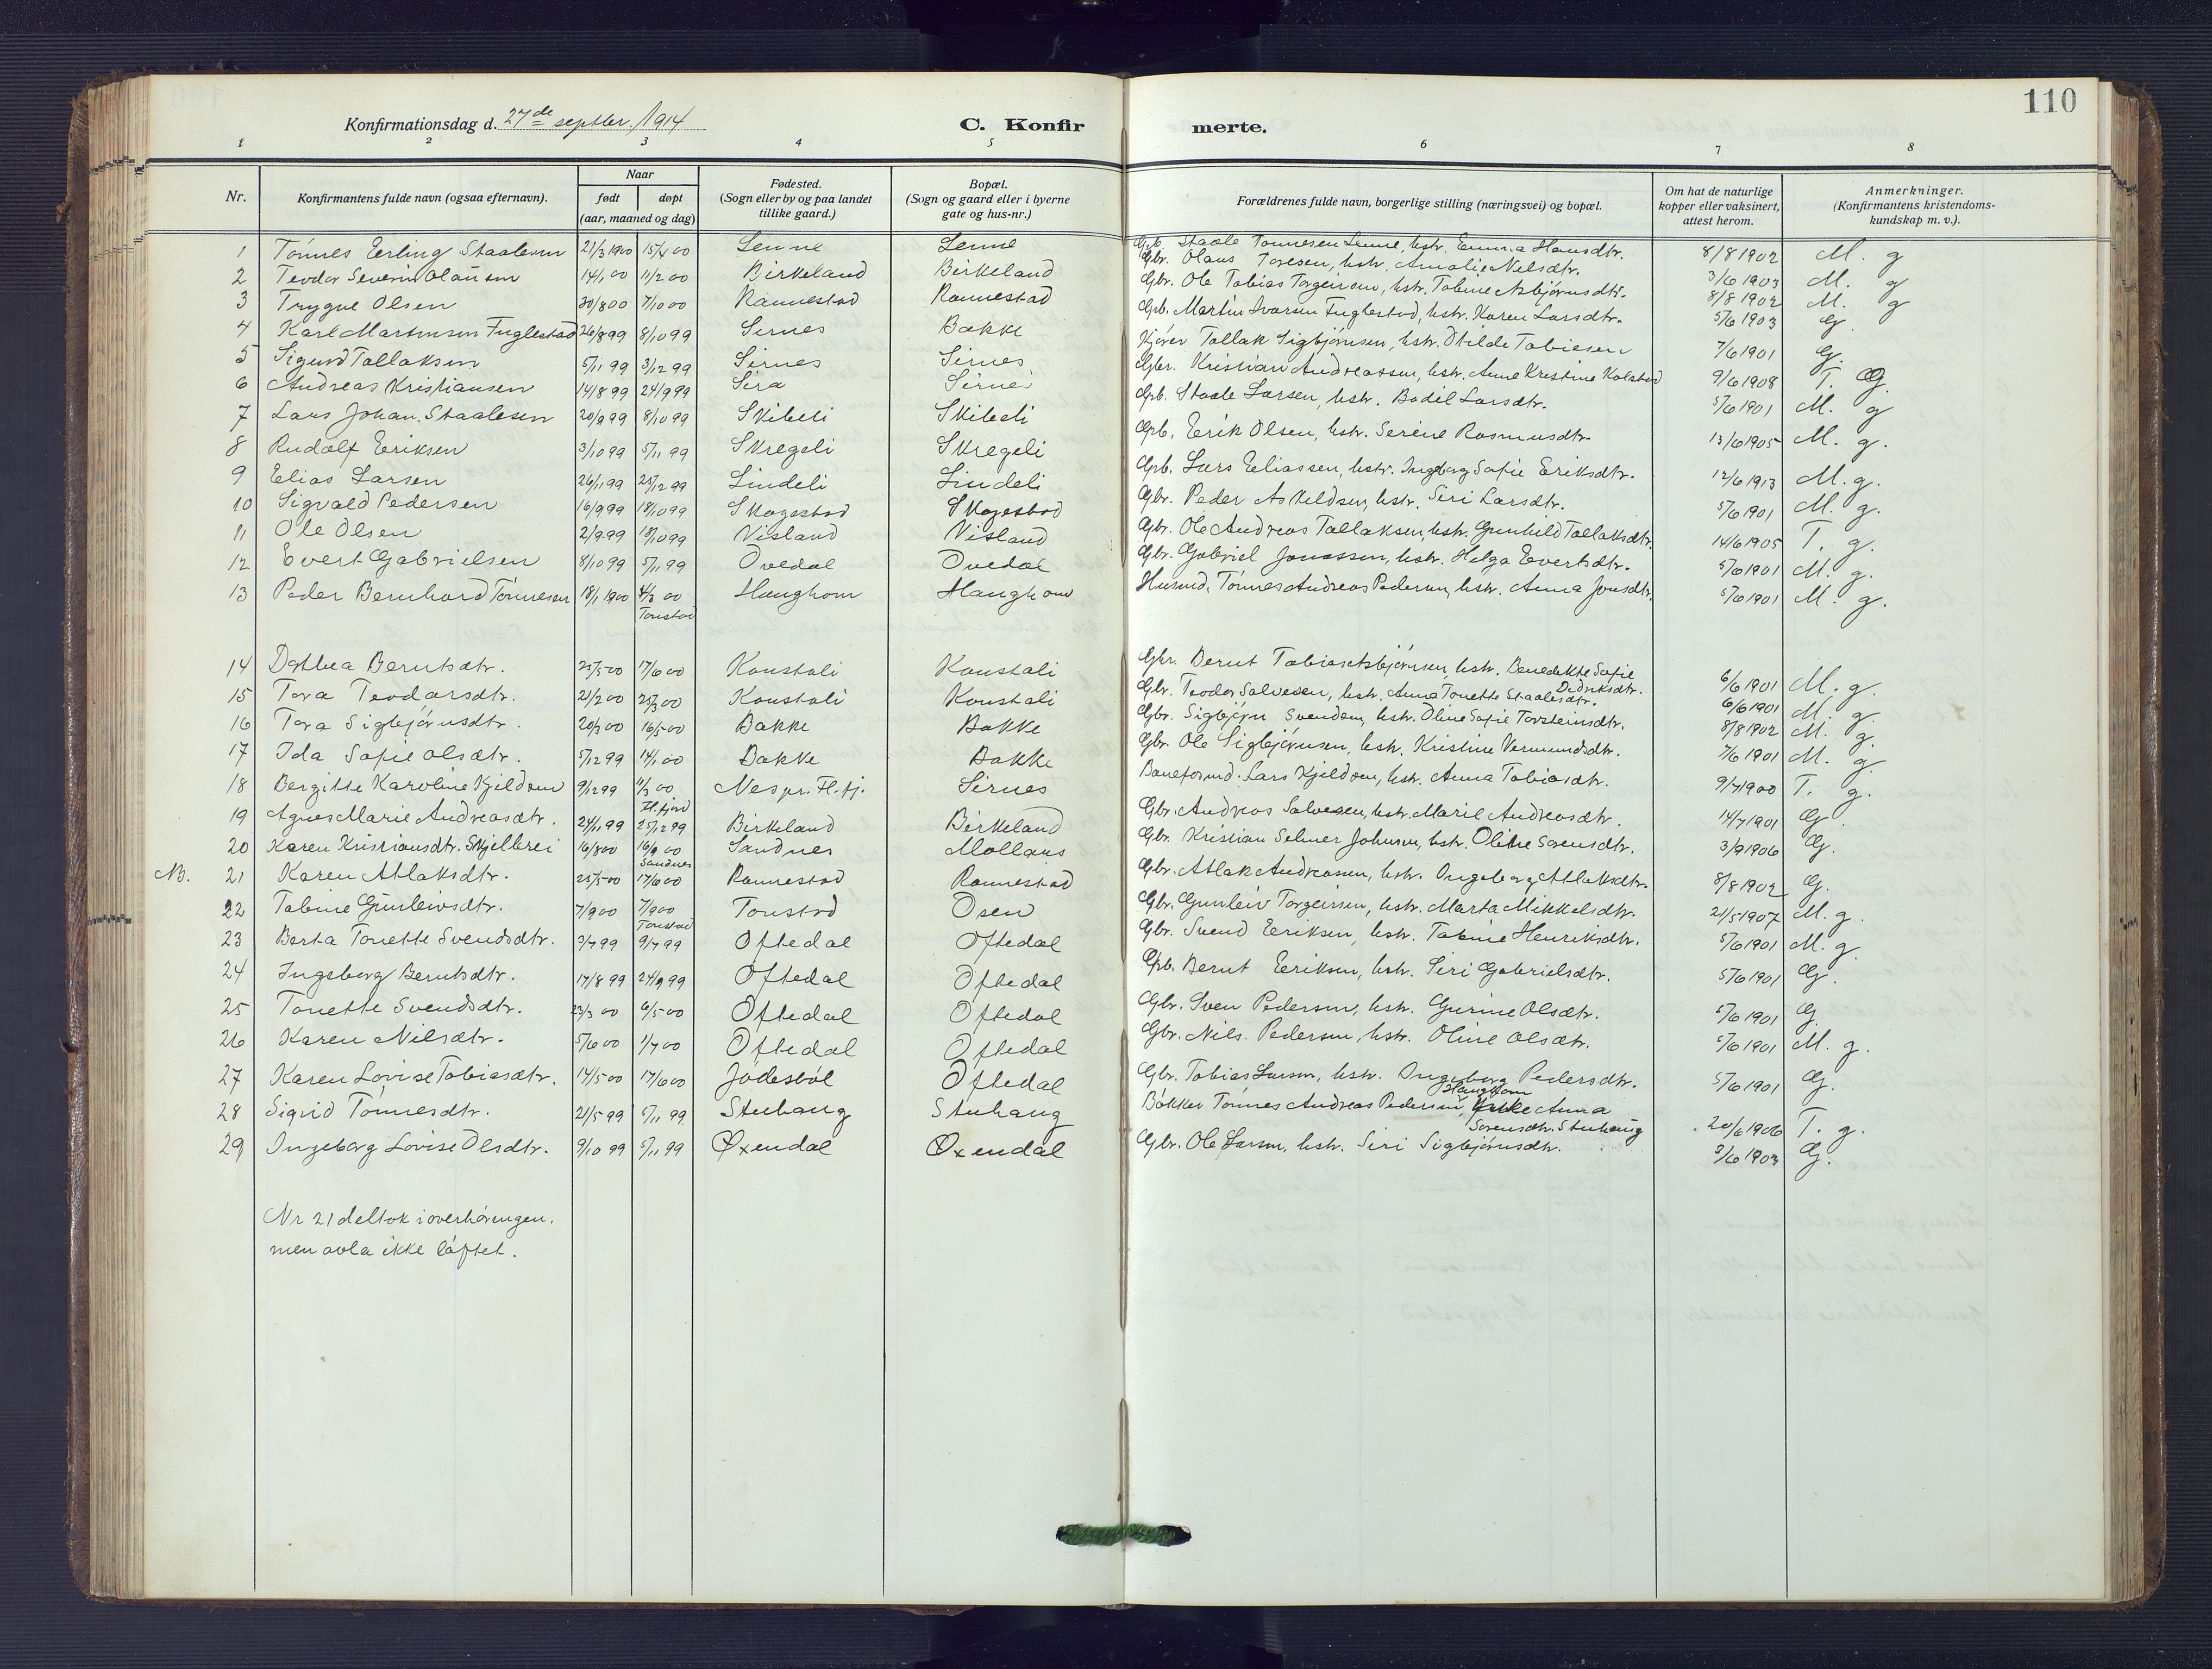 110
Konfirmationsdag d. 27de septbr. 1914 C. Konfirmerte.
1 2 3 4 5 6 7 8
Nr. Konfirmantens fulde navn (ogsaa efternavn). Naar født døpt (aar, maaned og dag) Fødested. (Sogn eller by og paa landet tillike gaard.) Bopæl. (Sogn og gaard eller i byerne gate og hus-nr.) Forældrenes fulde navn, borgerlige stilling (næringsvei) og bopæl. Om hat de naturlige kopper eller vaksinert, attest herom. Anmerkninger. (Konfirmantens kristendomskundskap m. v.).
1 Tønnes Eerling Staalesen 21/3 1900 15/4 00 Lenne Lenne Gbr. Staale Tønnesen Lenne, hstr. Emma Hansdtr. 8/8 1902 M. g
2 Teodor Severin Olausen 14/1 00 11/2 00 Birkeland Birkeland Gbr. Olaus Toresen, hstr. Amalie Nelsdtr. 3/6 1903 M. g
3 Trygve Olsen 30/8 00 7/10 00 Rannestad Rannestad Gbr. Ole Tobias Torgeirsen, hstr. Tobine Asbjørnsdtr. 8/8 1902 M. g
4 Karl Martinsen Fuglestad 26/8 99 8/10 99 Sirnes Bakke Gbr. Martin Ivarsen Fuglestad, hstr. Karen Larsdtr. 5/6 1903 G.
5 Sigurd Tallaksen 5/11 99 3/12 99 Sirnes Sirnes Kjører Tallak Sigbjørnsen, hstr. Othilde Tobiesen 7/6 1901 G.
6 Andreas Kristiansen 14/8 99 24/9 99 Sira Sirnes Gbr. Kristian Andreassen, hstr. Anne Kristine Kalstad 9/6 1908 T. G.
7 Lars Johan Staalesen 20/9 99 8/10 99 Skibeli Skibeli Gbr. Staale Larsen, hstr. Bodil Larsdtr. 5/6 1901 M. g
8 Rudolf Eriksen 3/10 99 5/11 99 Skregeli Skregeli Gbr. Erik Olsen, hstr. Serine Rasmusdtr. 13/6 1905 M. g.
9 Elias Larsen 26/11 99 25/12 99 Lindeli Lindeli Gbr. Lars Eliassen, hstr. Ingeborg Sofie Eriksdtr. 12/6 1913 M. g.
10 Sigvald Pedersen 16/9 99 18/10 99 Skogestad Skogestad Gbr. Peder Askildsen, hstr. Siri Larsdtr. 5/6 1901 M. g.
11 Ole Olsen 2/9 99 18/10 99 Visland Visland Gbr. Ole Andreas Tallaksen, hstr. Gunhild Tallaksdtr. 14/6 1905 T. g.
12 Evert Gabrielsen 8/10 99 5/11 99 Ovedal Ovedal Gbr. Gabriel Jonassen, hstr. Helga Evertsdtr. 5/6 1901 M. g.
13 Peder Bernhard Tønnesen 18/1 1900 4/3 00 Haughom Haughom Husmd. Tønnes Andreas Pedersen, hstr. Anna Jonsdtr. 5/6 1901 M. g.
Tonstad
14 Dothea Berntsdtr. 25/5 00 17/6 00 Konstali Konstali Gbr. Bernt Tobias Asbjørnsen, hstr. Benedikte Sofie Didriksdtr. 6/6 1901 M. g.
15 Tora Teodorsdtr. 21/2 00 25/3 00 Konstali Konstali Gbr. Teodor Salvesen, hstr. Anna Tonette Staalesdtr. 6/6 1901 M. g.
16 Tora Sigbjørnsdtr. 20/3 00 16/5 00 Bakke Bakke Gbr. Sigbjørn Svendsen, hstr. Oline Sofie Torsteinsdtr. 8/8 1902 M. g.
17 Ida Sofie Olsdtr. 5/12 99 14/1 00 Bakke Bakke Gbr. Ole Sigbjørnsen, hstr. Kristine Vermundsdtr. 7/6 1901 M. g
18 Bergitte Karoline Kjeldsen 9/12 99 11/3 00 Nes pr. Fl.fj. Sirnes Baneformd. Lars Kjeldsen, hstr. Anna Tobiasdtr. 9/7 1900 T. g.
Fl.fjord
19 Agnes Marie Andreasdtr. 24/11 99 25/12 99 Birkeland Birkeland Gbr. Andreas Salvesen, hstr. Marie Andreasdtr. 14/7 1901 G.
20 Karen Kristiansdtr. Skjelbrei 16/8 00 16/9 00 Sandnes Mollans Gbr. Kristian Selmer Johnsen, hstr. Oline Sørensdtr. 3/9 1906 G.
Sandnes
NB. 21 Karen Atlaksdtr. 25/5 00 17/6 00 Rannestad Rannestad Gbr. Atlak Andreassen, hstr. Ingeborg Atlaksdtr. 8/8 1902 G.
22 Tobine Gunleivsdtr. 7/9 00 7/9 00 Tonstad Osen Gbr. Gunleiv Torgeirsen, hstr. Marta Mikkelsdtr. 21/5 1907 M. g.
Tonstad
23 Berta Tonette Svendsdtr. 3/7 99 9/7 99 Oftedal Oftedal Gbr. Svend Eriksen, hstr. Tobine Henriksdtr. 5/6 1901 M. g.
24 Ingeborg Berntsdtr. 17/8 99 24/9 99 Oftedal Oftedal Gbr. Bernt Eriksen, hstr. Siri Gabrielsdtr. 5/6 1901 G.
25 Tonette Svendsdtr. 23/3 00 6/5 00 Oftedal Oftedal Gbr. Sven Pedersen, hstr. Gurine Olsdtr. 5/6 1901 G
26 Karen Nilsdtr. 5/6 00 1/7 00 Oftedal Oftedal Gbr. Nils Pedersen, hstr. Oline Olsdtr. 5/6 1901 M. g.
27 Karen Lovise Tobiasdtr. 14/5 00 17/6 00 Jødestøl Oftedal Gbr. Tobias Larsen, hstr. Ingeborg Pedersdtr. 5/6 1901 G.
28 Sigrid Tønnesdtr. 21/5 99 5/11 99 Stuhaug Stuhaug Bøkker Tønnes Andreas Pedersen Haughom, Anna Sorensdtr. Stuhaug 20/6 1906 T. g.
29 Ingeborg Lovise Olsdtr. 9/10 99 5/11 99 Øxendal Øxendal Gbr. Ole Larsen, hstr. Siri Sigbjørnsdtr. 3/6 1903 G.
Nr 21 deltok i overhøringen.
men avla ikke løftet.